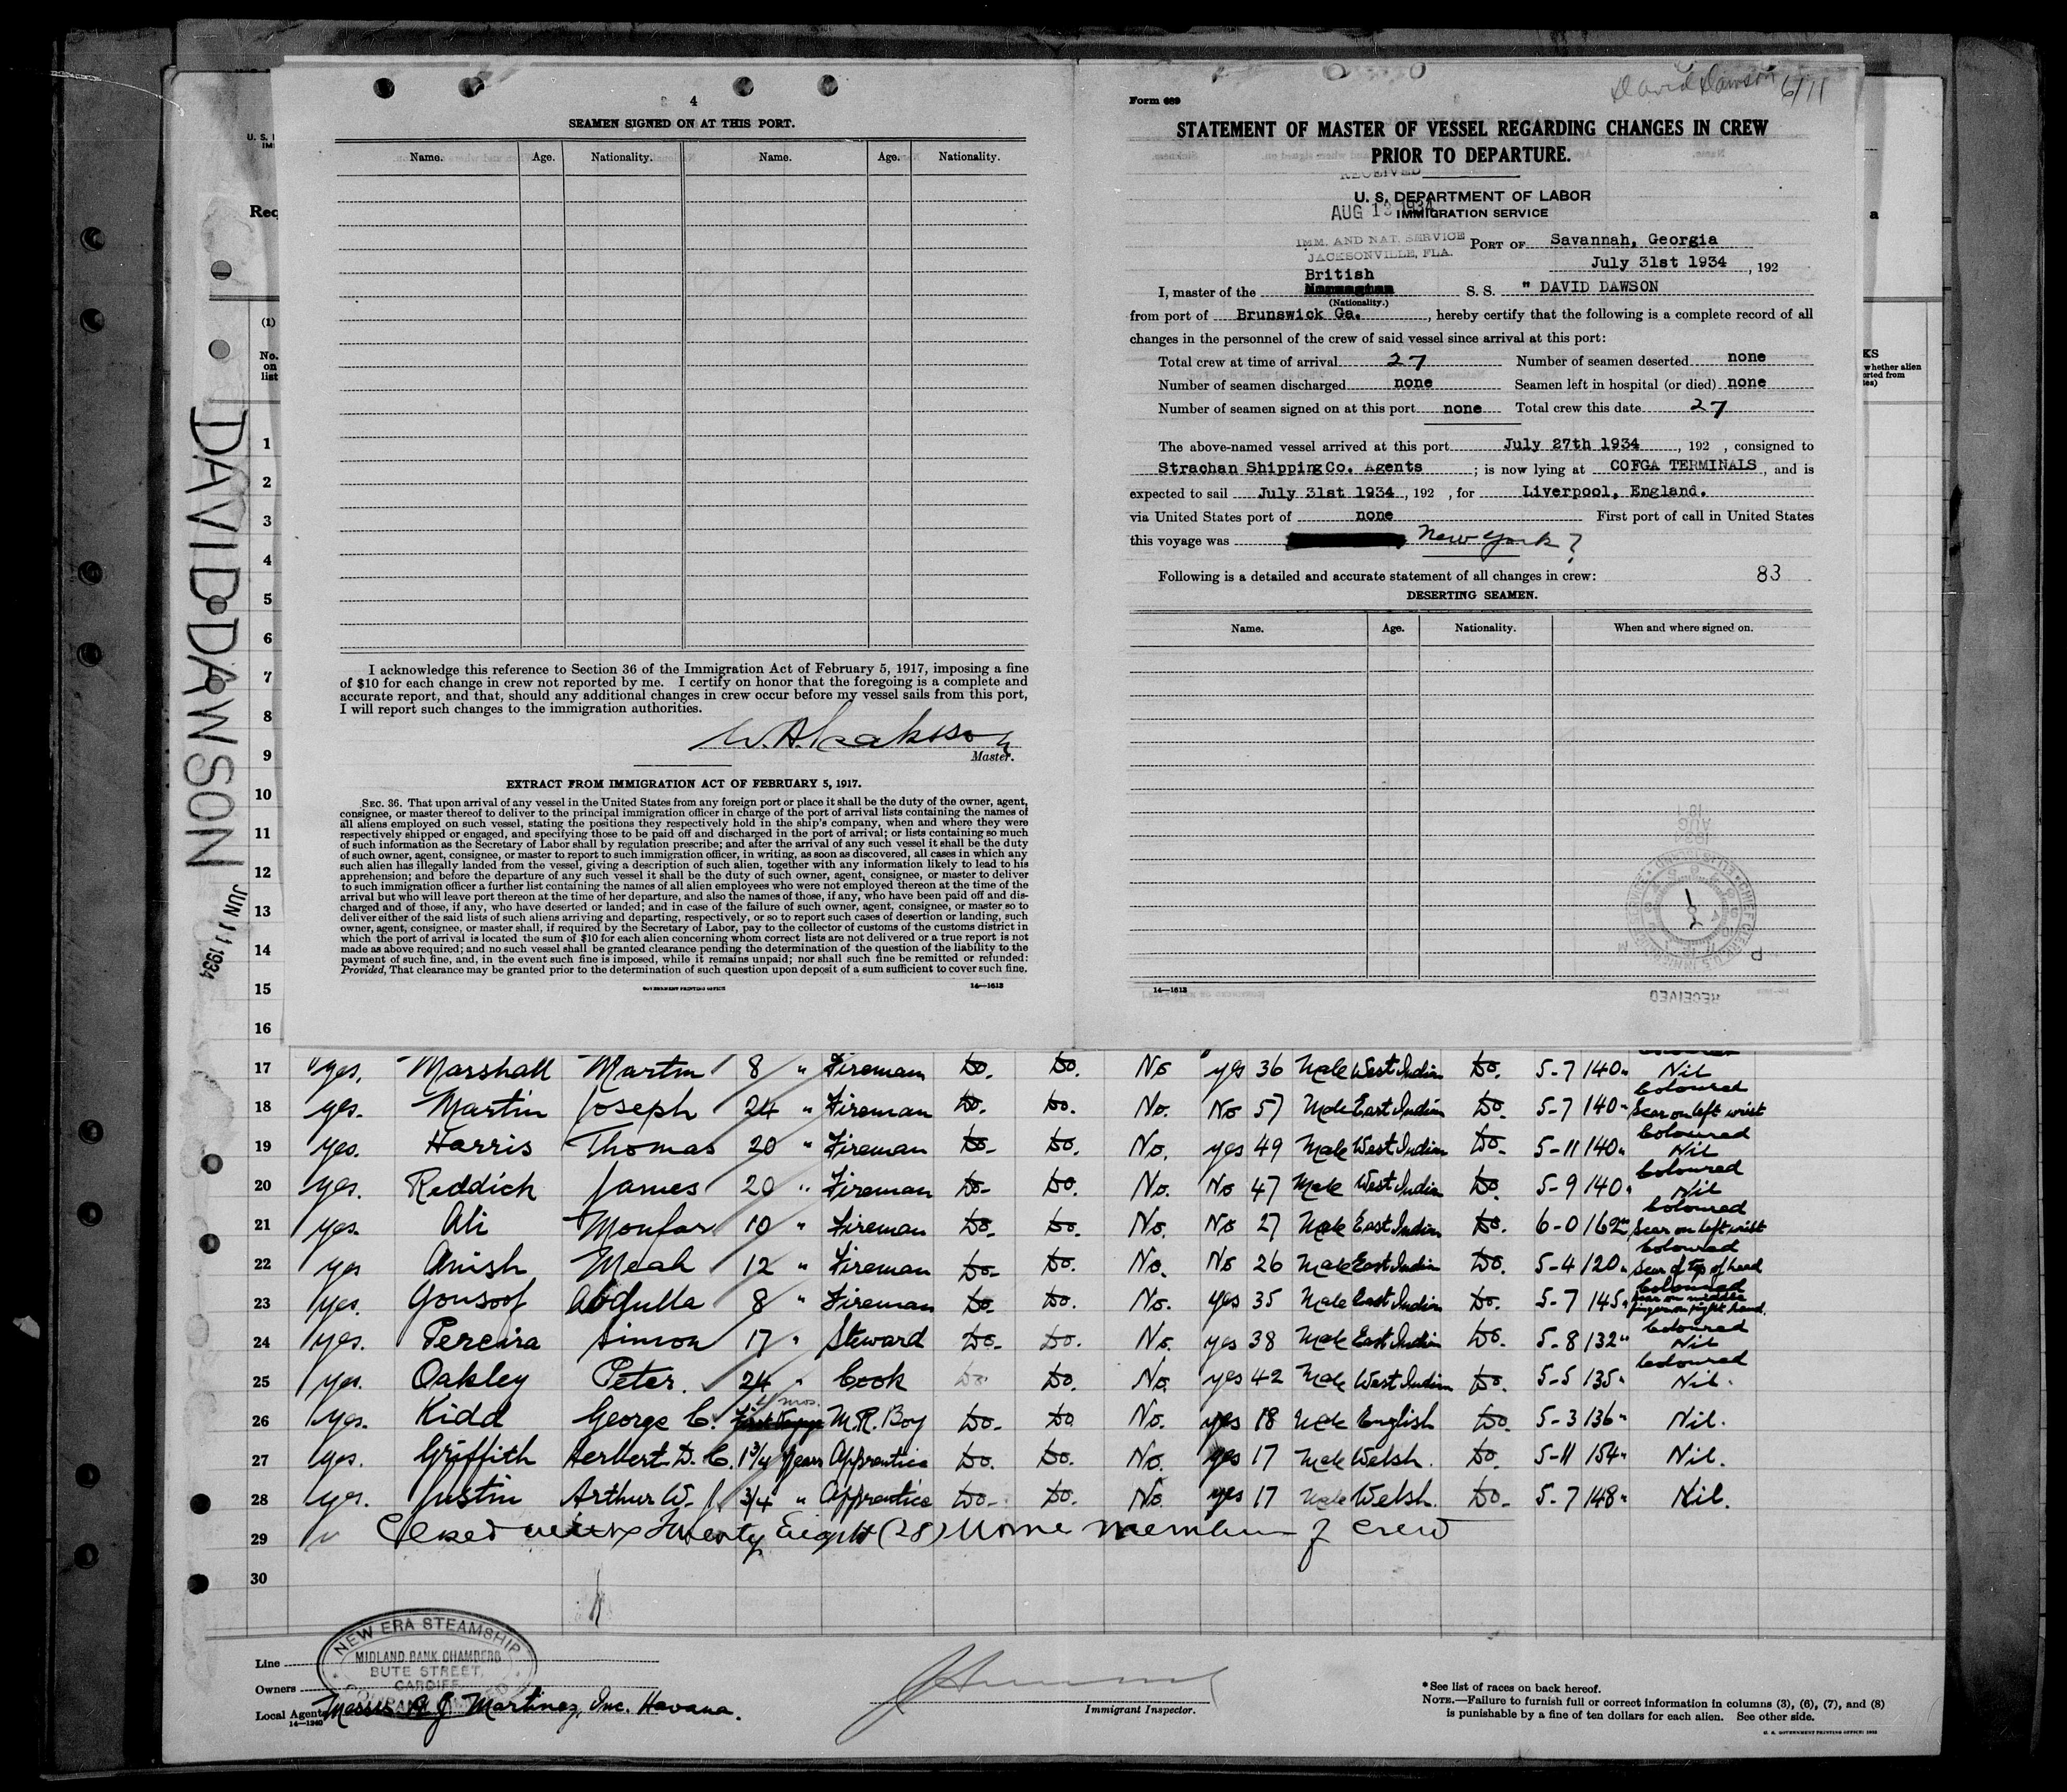 4
SEAMEN SIGNED ON AT THIS PORT.
Name. Age. Nationality. Name. Age. Nationality.
I acknowledge this reference to Section 36 of the Immigration Act of February 5, 1917, imposing a fine
of $10 for each change in crew not reported by me. I certify on honor that the foregoing is a complete and
accurate report, and that, should any additional changes in crew occur before my vessel sails from this port,
I will report such changes to the immigration authorities.
Master.
EXTRACT FROM IMMIGRATION ACT OF FEBRUARY 5, 1917.
SEC. 36. That upon arrival of any vessel in the United States from any foreign port or place it shall be the duty of the owner, agent,
consignee, or master thereof to deliver to the principal immigration officer in charge of the port of arrival lists containing the names of
all aliens employed on such vessel, stating the positions they respectively hold in the ship's company, when and where they were
respectively shipped or engaged, and specifying those to be paid off and discharged in the port of arrival; or lists containing so much
of such information as the Secretary of Labor shall by regulation prescribe; and after the arrival of any such vessel it shall be the duty
of such owner, agent, consignee, or master to report to such immigration officer, in writing, as soon as discovered, all cases in which any
such alien has illegally landed from the vessel, giving a description of such alien, together with any information likely to lead to his
apprehension; and before the departure of any such vessel it shall be the duty of such owner, agent, consignee, or master to deliver
to such immigration officer a further list containing the names of all alien employees who were not employed thereon at the time of the
arrival but who will leave port thereon at the time of her departure, and also the names of those, if any, who have been paid off and dis-
charged and of those, if any, who have deserted or landed; and in case of the failure of such owner, agent, consignee, or master so to
deliver either of the said lists of such aliens arriving and departing, respectively, or so to report such cases of desertion or landing, such
owner, agent, consignee, or master shall, if required by the Secretary of Labor, pay to the collector of customs of the customs district in
which the port of arrival is located the sum of $10 for each alien concerning whom correct lists are not delivered or a true report is not
made as above required; and no such vessel shall be granted clearance pending the determination of the question of the liability to the
payment of such fine, and, in the event such fine is imposed, while it remains unpaid; nor shall such fine be remitted or refunded:
Provided, That clearance may be granted prior to the determination of such question upon deposit of a sum sufficient to cover such fine.
GOVERNMENT PRINTING OFFICE 14—1613
David Dawson 6/11
Form 689
STATEMENT OF MASTER OF VESSEL REGARDING CHANGES IN CREW
PRIOR TO DEPARTURE.
RECEIVED
U. S. DEPARTMENT OF LABOR
AUG 13 1934
IMMIGRATION SERVICE
IMM. AND NAT. SERVICE
JACKSONVILLE, FLA.
PORT OF Savannah, Georgia
July 31st 1934, 192
British
I, master of the S. S. " DAVID DAWSON
(Nationality.)
from port of Brunswick Ga., hereby certify that the following is a complete record of all
changes in the personnel of the crew of said vessel since arrival at this port:
Total crew at time of arrival 27 Number of seamen deserted none
Number of seamen discharged none Seamen left in hospital (or died) none
Number of seamen signed on at this port none Total crew this date 27
The above-named vessel arrived at this port July 27th 1934, 192 , consigned to
Strachan Shipping Co. Agents; is now lying at COFGA TERMINALS, and is
expected to sail July 31st 1934, 192 , for Liverpool, England.
via United States port of none First port of call in United States
this voyage was New York?
Following is a detailed and accurate statement of all changes in crew: 83
DESERTING SEAMEN.
Name. Age. Nationality. When and where signed on.
14—1613
RECEIVED
DAVID DAWSON
JUN 11 1934
Req
(1)
No. on list
1
2
3
4
5
6
7
8
9
10
11
12
13
14
15
16
17 yes. Marshall Martin 8 " Fireman Do. Do. No yes 36 Male West Indian Do. 5-7 140" Nil
18 yes. Martin Joseph 24 " Fireman Do. Do. No. No 57 Male East Indian Do. 5-7 140" Coloured Scar on left wrist
19 yes. Harris Thomas 20 " Fireman Do. Do. No. yes 49 Male West Indian Do. 5-11 140" Coloured Nil
20 yes. Reddick James 20 " Fireman Do. Do. No. No 47 Male West Indian Do. 5-9 140" Coloured Nil
21 yes. Ali Monfar 10 " Fireman Do. Do. No. No 27 Male East Indian Do. 6-0 162" Coloured Scar on left wrist
22 yes Anish Meah 12 " Fireman Do. Do. No. No 26 Male East Indian Do. 5-4 120" Coloured Scar of top of head
23 yes. Yousoof Abdulla 8 " Fireman Do. Do. No. yes 35 Male East Indian Do. 5-7 145" Coloured Scar on middle finger on right hand.
24 yes. Pereira Simon 17 " Steward Do. Do. No. yes 38 Male East Indian Do. 5-8 132" Coloured Nil
25 yes. Oakley Peter. 24 " Cook Do. Do. No. yes 42 Male West Indian Do. 5-5 135" Coloured Nil.
26 yes. Kidd George C. mos. M.R. Boy Do. Do No. yes 18 Male English Do. 5-3 136" Nil.
27 yes. Griffith Herbert D. C. 1 3/4 years Apprentice Do. Do. No. yes 17 Male Welsh. Do. 5-11 154" Nil.
28 yes. Justin Arthur W. J. 3/4 " Apprentice Do. Do. No. yes 17 Male Welsh. Do. 5-7 148" Nil.
29 Closed with Twenty Eight (28) members of crew
30
NEW ERA STEAMSHIP
MIDLAND BANK CHAMBERS
BUTE STREET,
CARDIFF
Line
Owners
Local Agents Messrs A. J. Martinez, Inc. Havana.
14—1240
Immigrant Inspector.
*See list of races on back hereof.
NOTE.—Failure to furnish full or correct information in columns (3), (6), (7), and (8)
is punishable by a fine of ten dollars for each alien. See other side.